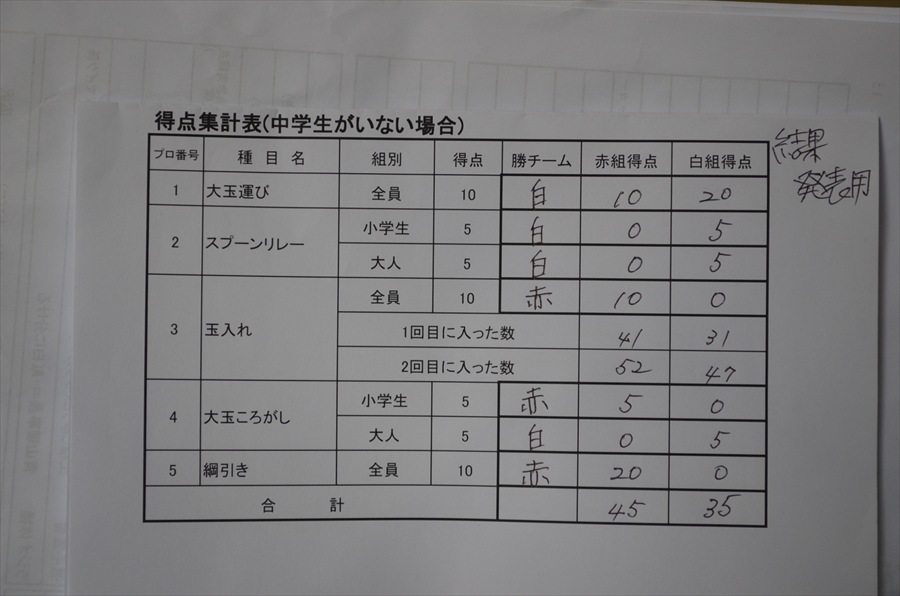 得点集計表(中学生がいない場合)
結果
発表用
プロ番号 種目名 組別 得点 勝チーム 赤組得点 白組得点
1 大玉運び 全員 10 白 10 20
2 スプーンリレー 小学生 5 白 0 5
大人 5 白 0 5
3 玉入れ 全員 10 赤 10 0
1回目に入った数 41 31
2回目に入った数 52 47
4 大玉ころがし 小学生 5 赤 5 0
大人 5 白 0 5
5 綱引き 全員 10 赤 20 0
合計 45 35